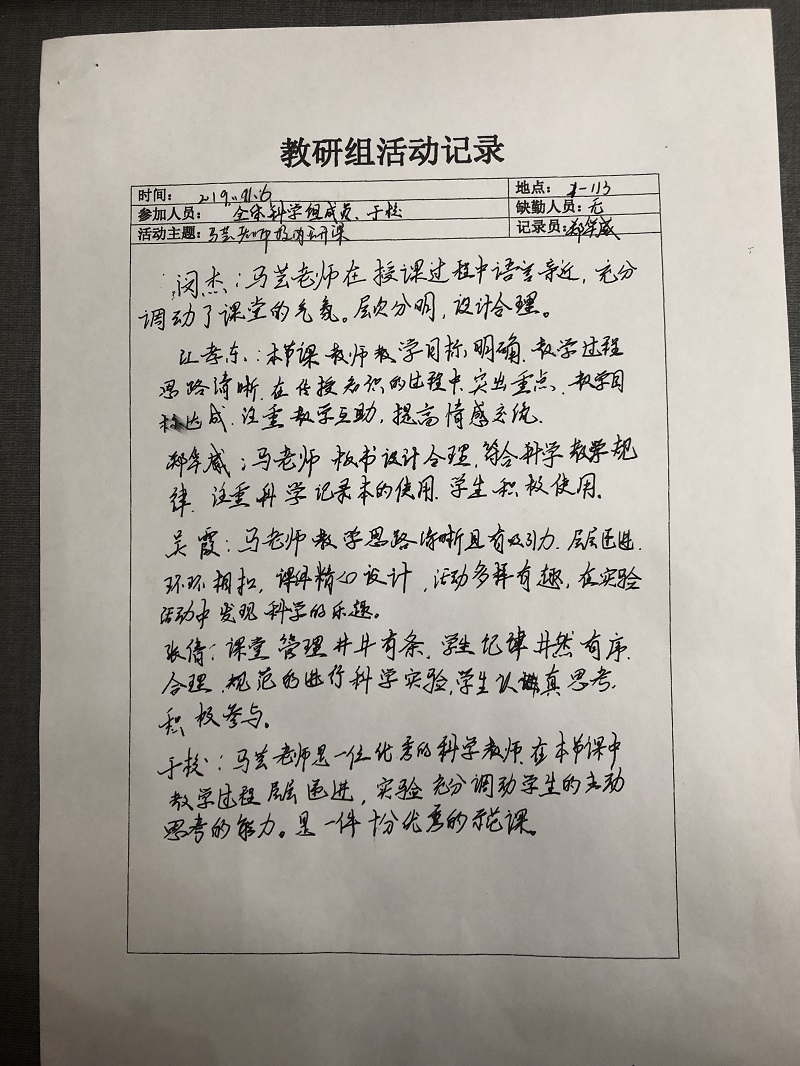 教研组活动记录
时间： 2019.11.6 地点： 1-113
参加人员： 全体科学组成员、于校 缺勤人员：无
活动主题：马芸老师校内公开课 记录员：郝华威
闵杰：马芸老师在授课过程中语言亲近，充分
调动了课堂的气氛。层次分明，设计合理。
江孝东：本节课教师教学目标明确，教学过程
思路清晰，在传授知识的过程中，突出重点、教学目
标达成，注重教学互助，提高情感交流。
郝华威：马老师板书设计合理，符合科学教学规
律，注重科学记录本的使用，学生积极使用。
吴霞：马老师教学思路清晰且有吸引力，层层递进，
环环相扣，课件精心设计，活动多样有趣，在实验
活动中发现科学的乐趣。
张倩：课堂管理井井有条，学生纪律井然有序，
合理、规范的进行科学实验，学生认真思考，
积极参与。
于校：马芸老师是一位优秀的科学教师，在本节课中
教学过程层层递进，实验充分调动学生的主动
思考的能力。是一件十分优秀的示范课。